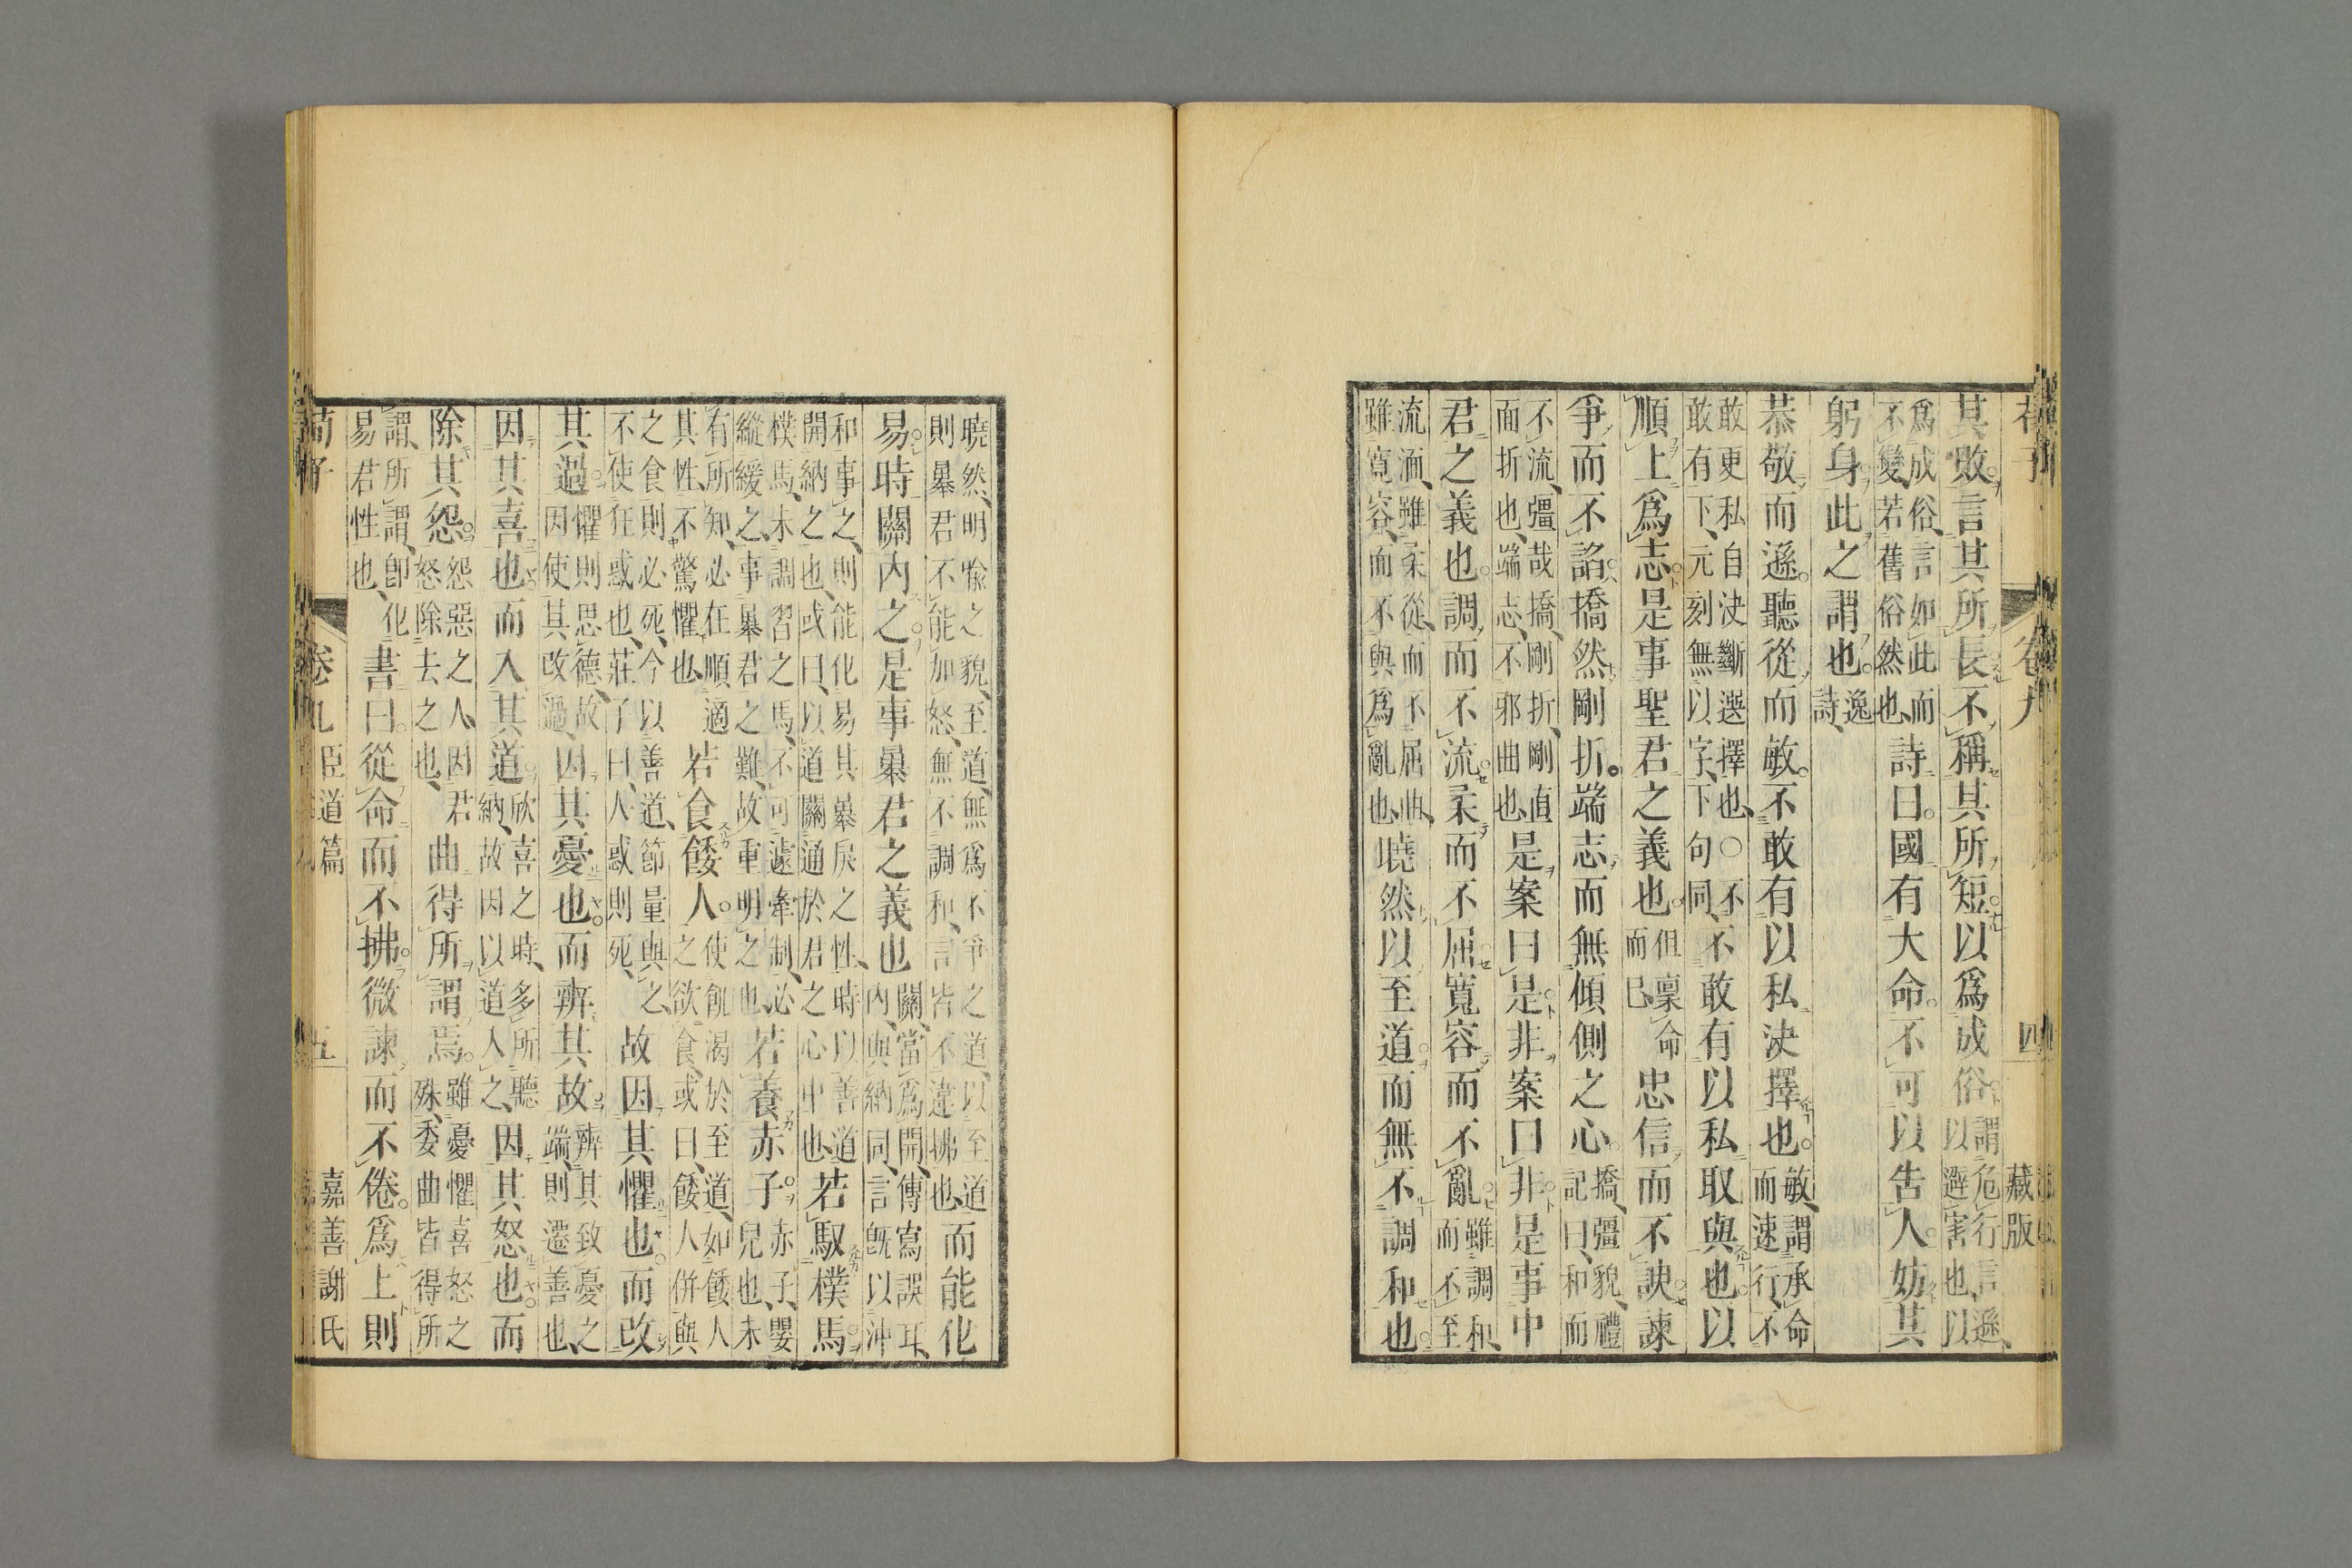 荀子 卷九 四 藏版
其敗言其所長不稱其所短以爲成俗 謂危行言遜以避害也以
爲成俗言如此而不變若舊俗然也 詩曰國有大命不可以告人妨其
躬身此之謂也 逸詩
恭敬而遜聽從而敏不敢有以私決擇也 敏謂承命而速行不
敢更私自決斷選擇也〇不敢有下元刻無以字下句同 不敢有以私取與也以
順上爲志是事聖君之義也 但稟命而已 忠信而不諛諫
爭而不諂撟然剛折端志而無傾側之心 撟彊貌禮記曰和而
不流彊哉撟剛折剛直面折也端志不邪曲也 是案曰是非案曰非是事中
君之義也調而不流柔而不屈寬容而不亂 雖調和而不至
流湎雖柔從而不屈曲雖寬容而不與爲亂也 曉然以至道而無不調和也
曉然明喻之貌至道無爲不爭之道以至道則暴君不能加怒無不調和言皆不違拂也 而能化
易時關內之是事暴君之義也 關當爲開傳寫誤耳內與納同言旣以沖
和事之則能化易其暴戾之性時以善道開納之也或曰以道關通於君之心中也 若馭樸馬
樸馬未調習之馬不可遽牽制必縱緩之事暴君之難故重明之也 若養赤子 赤子嬰兒也未
有所知必在順適其性不驚懼也 若食餧人 使飢渴於至道如餧人之欲食或曰餧人併與
之食則必死今以善道節量與之不使狂惑也莊子曰人惑則死 故因其懼也而改
其過 懼則思德故因使其改過 因其憂也而辨其故 辨其致憂之端則遷善也
因其喜也而入其道 欣喜之時多所聽納故因以道入之 因其怒也而
除其怨 怨惡之人因君怒除去之也 曲得所謂焉 雖憂懼喜怒之殊委曲皆得所
謂所謂卽化易君性也 書曰從命而不拂微諫而不倦爲上則
荀子 卷九 臣道篇 五 嘉善謝氏